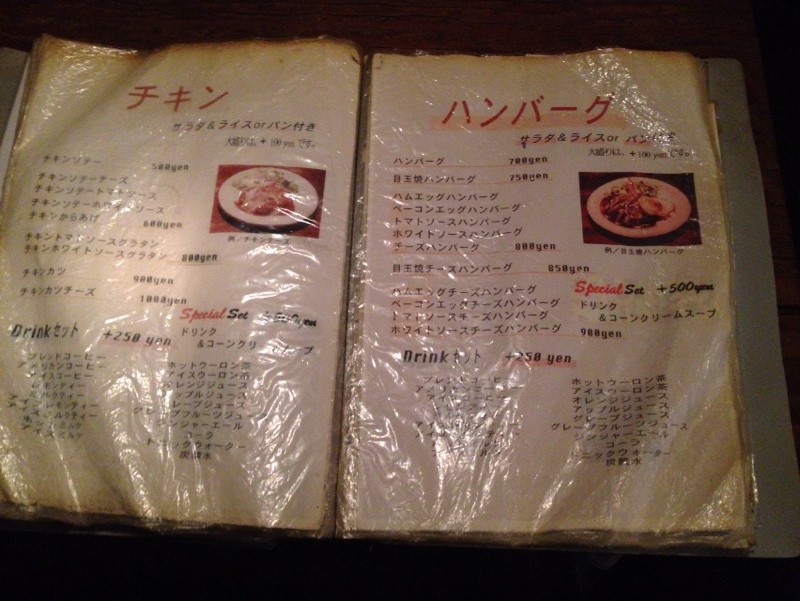 チキン
サラダ＆ライスorパン付き
大盛りは、＋100yenです。
チキンソテー
500yen
チキンソテーチーズ
チキンソテートマトソース
チキンソテーホワイトソース
チキンからあげ
600yen
チキントマトソースグラタン
チキンホワイトソースグラタン
800yen
チキンカツ
900yen
チキンカツチーズ
1000yen
例／チキン
Special Set
ドリンク
＆コーンクリ スープ
Drinkセット +250 yen
ブレンドコーヒー
アメリカンコーヒー
アイスコーヒー
レモンティー
ミルクティー
アイスレモンティー
アイスミルクティー
ホットミルク
アイスミルク
ホットウーロン茶
アイスウーロン茶
オレンジジュース
アップルジュース
グレープジュース
グレープフルーツジュース
ジンジャーエール
コーラ
トニックウォーター
炭酸水
ハンバーグ
サラダ＆ライスor パン付き
大盛りは、＋100yenです。
ハンバーグ 700yen
目玉焼ハンバーグ 750yen
ハムエッグハンバーグ
ベーコンエッグハンバーグ
トマトソースハンバーグ
ホワイトソースハンバーグ
チーズハンバーグ 800yen
目玉焼チーズハンバーグ 850yen
ハムエッグチーズハンバーグ
ベーコンエッグチーズハンバーグ
トマトソースチーズハンバーグ
ホワイトソースチーズハンバーグ 900yen
例／目玉焼ハンバーグ
Special Set +500yen
ドリンク
＆コーンクリームスープ
Drinkセット +250 yen
ホットウーロン茶
アイスウーロン茶
オレンジジュース
アップルジュース
グレープジュース
グレープフルーツジュース
ジンジャーエール
コーラ
トニックウォーター
炭酸水